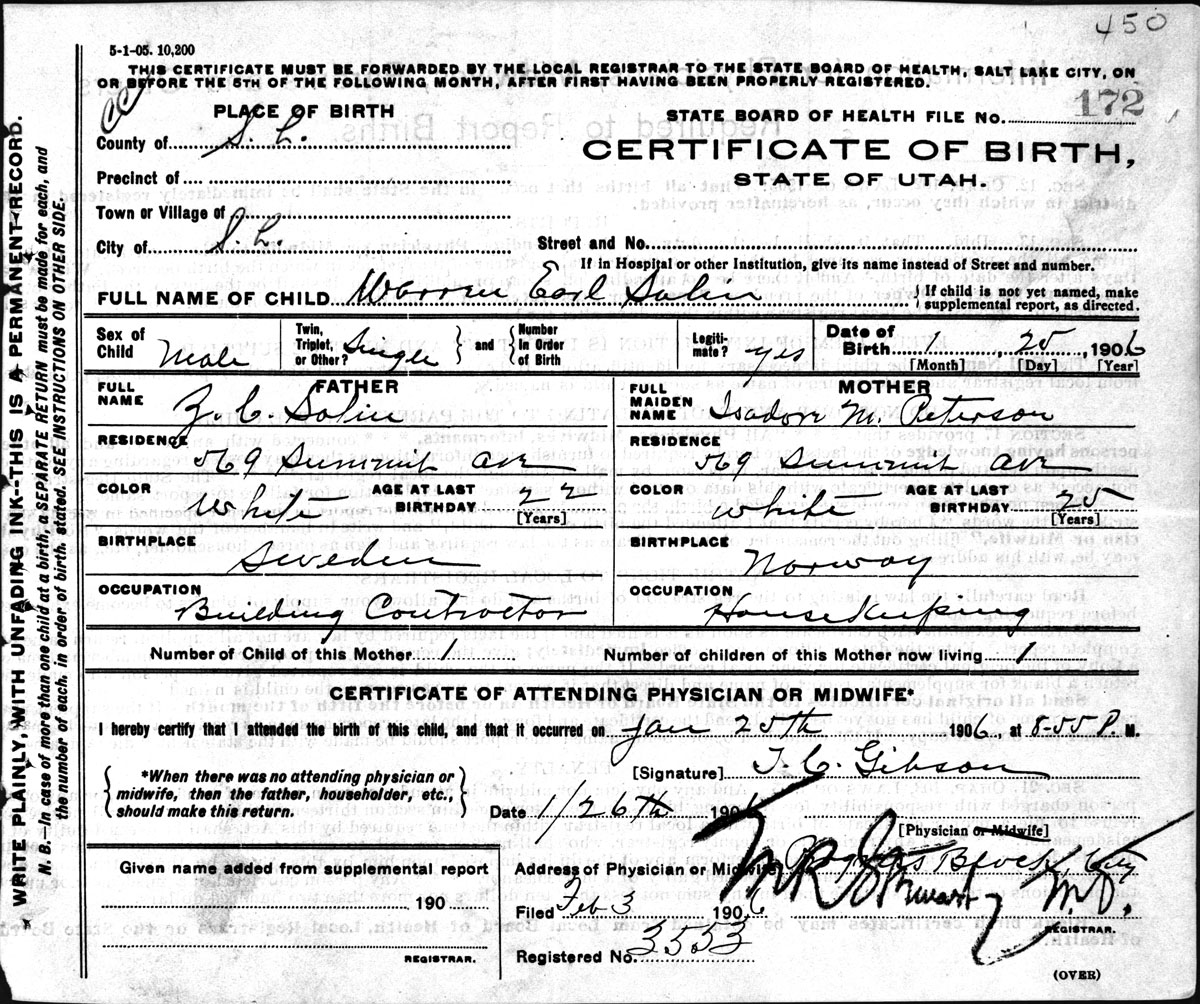 450
5-1-05. 10,200
THIS CERTIFICATE MUST BE FORWARDED BY THE LOCAL REGISTRAR TO THE STATE BOARD OF HEALTH, SALT LAKE CITY, ON
OR BEFORE THE 5TH OF THE FOLLOWING MONTH, AFTER FIRST HAVING BEEN PROPERLY REGISTERED.
PLACE OF BIRTH
STATE BOARD OF HEALTH FILE NO. 172
County of S. L.
CERTIFICATE OF BIRTH,
Precinct of
STATE OF UTAH.
Town or Village of
City of S. L.
Street and No.
If in Hospital or other Institution, give its name instead of Street and number.
FULL NAME OF CHILD Warren Earl Solin { If child is not yet named, make supplemental report, as directed.
Sex of Child Male Twin, Triplet, or Other? Single } and { Number In Order of Birth Legiti-mate? yes Date of Birth 1, 25 1906
[Month] [Day] [Year]
FATHER
FULL NAME C. Solin
RESIDENCE 569 Summit Ave
COLOR White AGE AT LAST BIRTHDAY 22 [Years]
BIRTHPLACE Sweden
OCCUPATION Building Contractor
MOTHER
FULL MAIDEN NAME Isadore M. Peterson
RESIDENCE 569 Summit Ave
COLOR White AGE AT LAST BIRTHDAY 25 [Years]
BIRTHPLACE Norway
OCCUPATION Housekeeping
Number of Child of this Mother 1 Number of children of this Mother now living 1
CERTIFICATE OF ATTENDING PHYSICIAN OR MIDWIFE*
I hereby certify that I attended the birth of this child, and that it occurred on Jan 25th 1906, at 8-55 P. M.
{ *When there was no attending physician or
midwife, then the father, householder, etc.,
should make this return. }
[Signature] T. C. Gibson
Date 1/26th 190
[Physician or Midwife]
Address of Physician or Midwife Block, City
Filed Feb 3 1906
M. D.
REGISTRAR.
Registered No. 3553
Given name added from supplemental report
190
REGISTRAR.
(OVER)
WRITE PLAINLY, WITH UNFADING INK--THIS IS A PERMANENT RECORD.
N. B.—In case of more than one child at a birth, a SEPARATE RETURN must be made for each, and
the number of each, in order of birth, stated. SEE INSTRUCTIONS ON OTHER SIDE.